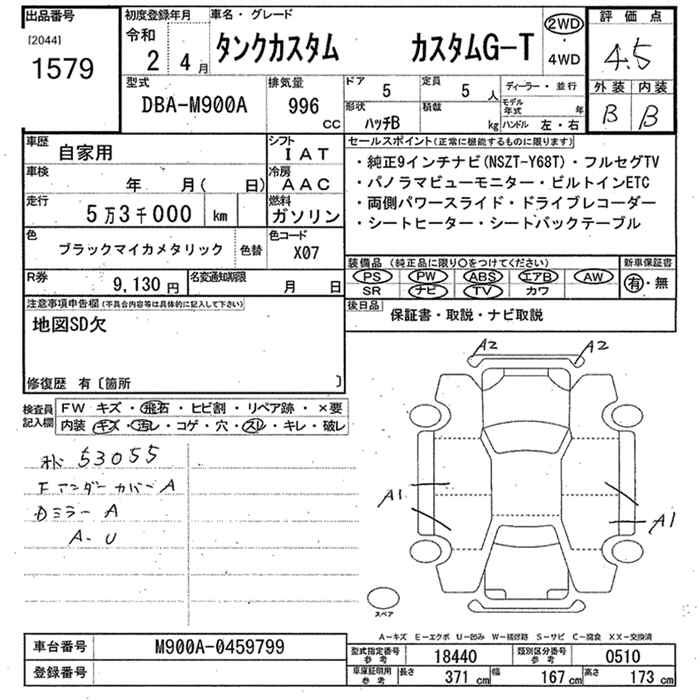 出品番号
[2044]
1579
初度登録年月
令和
2 4 月
車名・グレード
タンクカスタム カスタムG-T
2WD
・
4WD
評価点
4.5
外装 内装
B B
型式
DBA-M900A
排気量
996
CC
ドア
5
定員
5 人
形状
ハッチB
積載
kg
ディーラー・並行
モデル年式 年
ハンドル 左・右
車歴
自家用
シフト
IAT
車検
年 月( 日)
冷房
AAC
走行
5万3千000 km
燃料
ガソリン
色
ブラックマイカメタリック
色替
色コード
X07
R券
9,130円
名変通知期限
月 日
セールスポイント(正常に機能するものに限ります)
・純正9インチナビ(NSZT-Y68T)・フルセグTV
・パノラマビューモニター・ビルトインETC
・両側パワースライド・ドライブレコーダー
・シートヒーター・シートバックテーブル
装備品(純正品に限り〇をつけてください)
PS PW ABS エアB AW
SR ナビ TV カワ
新車保証書
有・無
後日品
保証書・取説・ナビ取説
注意事項申告欄(不具合内容等は具体的に記入して下さい)
地図SD欠
修復歴 有〔箇所 〕
検査員記入欄
FW キズ・飛石・ヒビ割・リペア跡・×要
内装 キズ・汚レ・コゲ・穴・スレ・キレ・破レ
53055
Fアンダーカバー A
Dミラー A
A-U
A2 A2
A1
A1
スペア
A-キズ E-エクボ U-凹み W-補修跡 S-サビ C-腐食 XX-交換済
車台番号
M900A-0459799
登録番号
型式指定番号
参考
18440
類別区分番号
参考
0510
車庫証明用
参考
長さ
371 cm
幅
167 cm
高さ
173 cm